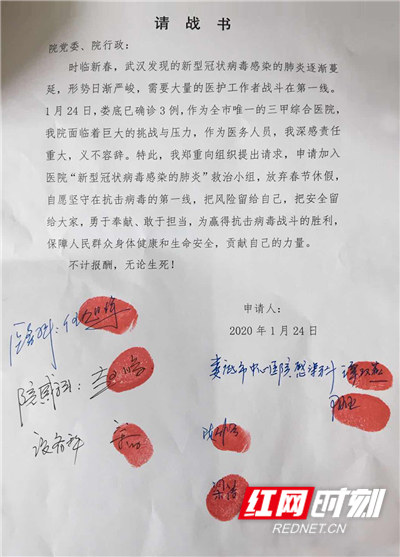 请战书
院党委、院行政：
时临新春，武汉发现的新型冠状病毒感染的肺炎逐渐蔓
延，形势日渐严峻，需要大量的医护工作者战斗在第一线。
1月24日，娄底已确诊3例，作为全市唯一的三甲综合医院，
我院面临着巨大的挑战与压力，作为医务人员，我深感责任
重大，义不容辞。特此，我郑重向组织提出请求，申请加入
医院“新型冠状病毒感染的肺炎”救治小组，放弃春节休假，
自愿坚守在抗击病毒的第一线，把风险留给自己，把安全留
给大家，勇于奉献、敢于担当，为赢得抗击病毒战斗的胜利，
保障人民群众身体健康和生命安全，贡献自己的力量。
不计报酬，无论生死！
申请人：
2020年1月24日
娄底市中心医院感染科
医务科：
院感科：
设备科
梁浩
红网时刻
REDNET.CN